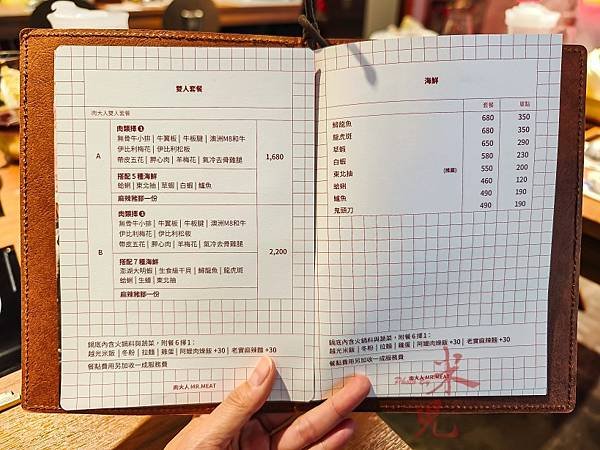 雙人套餐
肉大人雙人套餐
A
肉類擇❸
無骨牛小排 | 牛翼板 | 牛板腱 | 澳洲M8和牛
伊比利梅花 | 伊比利松板
帶皮五花 | 胛心肉 | 羊梅花 | 氣冷去骨雞腿
1,680
搭配5種海鮮
蛤蜊 | 東北抽 | 草蝦 | 白蝦 | 鱸魚
麻辣豬腳一份
B
肉類擇❸
無骨牛小排 | 牛翼板 | 牛板腱 | 澳洲M8和牛
伊比利梅花 | 伊比利松板
帶皮五花 | 胛心肉 | 羊梅花 | 氣冷去骨雞腿
2,200
搭配7種海鮮
澎湖大明蝦 | 生食級干貝 | 鱘龍魚 | 龍虎斑
蛤蜊 | 生蠔 | 東北抽
麻辣豬腳一份
鍋底內含火鍋料與蔬菜，附餐6擇1：
越光米飯 | 冬粉 | 拉麵 | 雞蛋 | 阿嬤肉燥飯+30 | 老實麻辣麵+30
餐點費用另加收一成服務費
肉大人MR.MEAT
海鮮
套餐 單點
鱘龍魚 680 350
龍虎斑 680 350
草蝦 650 290
白蝦 580 230
東北抽 (推薦) 550 200
蛤蜊 460 120
鱸魚 490 190
鬼頭刀 490 190
鍋底內含火鍋料與蔬菜，附餐6擇1：
越光米飯 | 冬粉 | 拉麵 | 雞蛋 | 阿嬤肉燥飯+30 | 老實麻辣麵+30
餐點費用另加收一成服務費
肉大人MR.MEAT
米覓